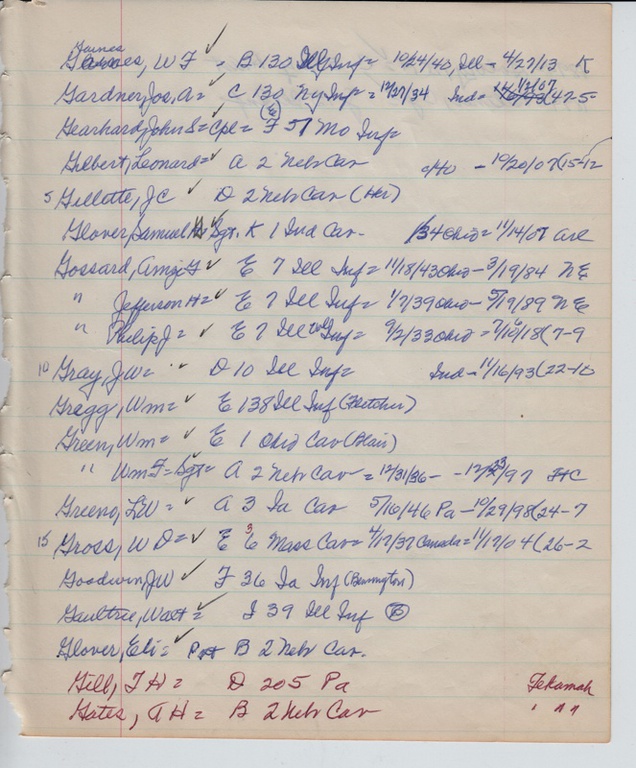 Gaines
Garnes, W F ✓ - B 130 Ill Inf = 10/24/40, Ill - 4/27/13 K
Gardner, Jos, A = ✓ C 130 Ny Inf = 12/27/34 Ind = 11/2/07 (47-5
Gearhard, John S = Cpl = F 51 Mo Inf = (E)
Gilbert, Leonard = ✓ A 2 Nebr Cav Oho - 10/20/07 (15-12
5 Gillette, J C ✓ D 2 Nebr Cav (Her)
Glover, Samuel Sgt. K 1 Ind Cav. Ohio = 11/14/07
Gossard, Amzi F ✓ E 7 Ill Inf = 11/18/43 Ohio - 3/19/84 N E
" Jefferson H = ✓ E 7 Ill Inf = 1/7/39 Ohio - 5/19/89 N E
" Philip J = ✓ E 7 Ill Inf = 9/2/33 Ohio = 7/10/18 (7-9
10 Gray, J W = ✓ D 10 Ill Inf = Ind - 11/16/93 (22-10
Gregg, Wm = ✓ E 138 Ill Inf (Fletcher)
Green, Wm = ✓ E 1 Ohio Cav (Blair)
" Wm F = Sgt = A 2 Nebr Cav = 12/31/36 - - 12/23/97 F C
Greeno, L W = ✓ A 3 Ia Cav 5/16/46 Pa - 10/29/98 (24-7
15 Gross, W D = ✓ E 6 3 Mass Cav = 4/17/37 Canada = 11/17/04 (26-2
Goodwin, J W ✓ F 36 Ia Inf (Bennington)
Gaultrie, Walt = ✓ I 39 Ill Inf (E)
Glover, Eli = ✓ Pvt B 2 Nebr Cav.
Gill, F H = D 205 Pa Tekamah
Gates, A H = B 2 Nebr Cav " " "